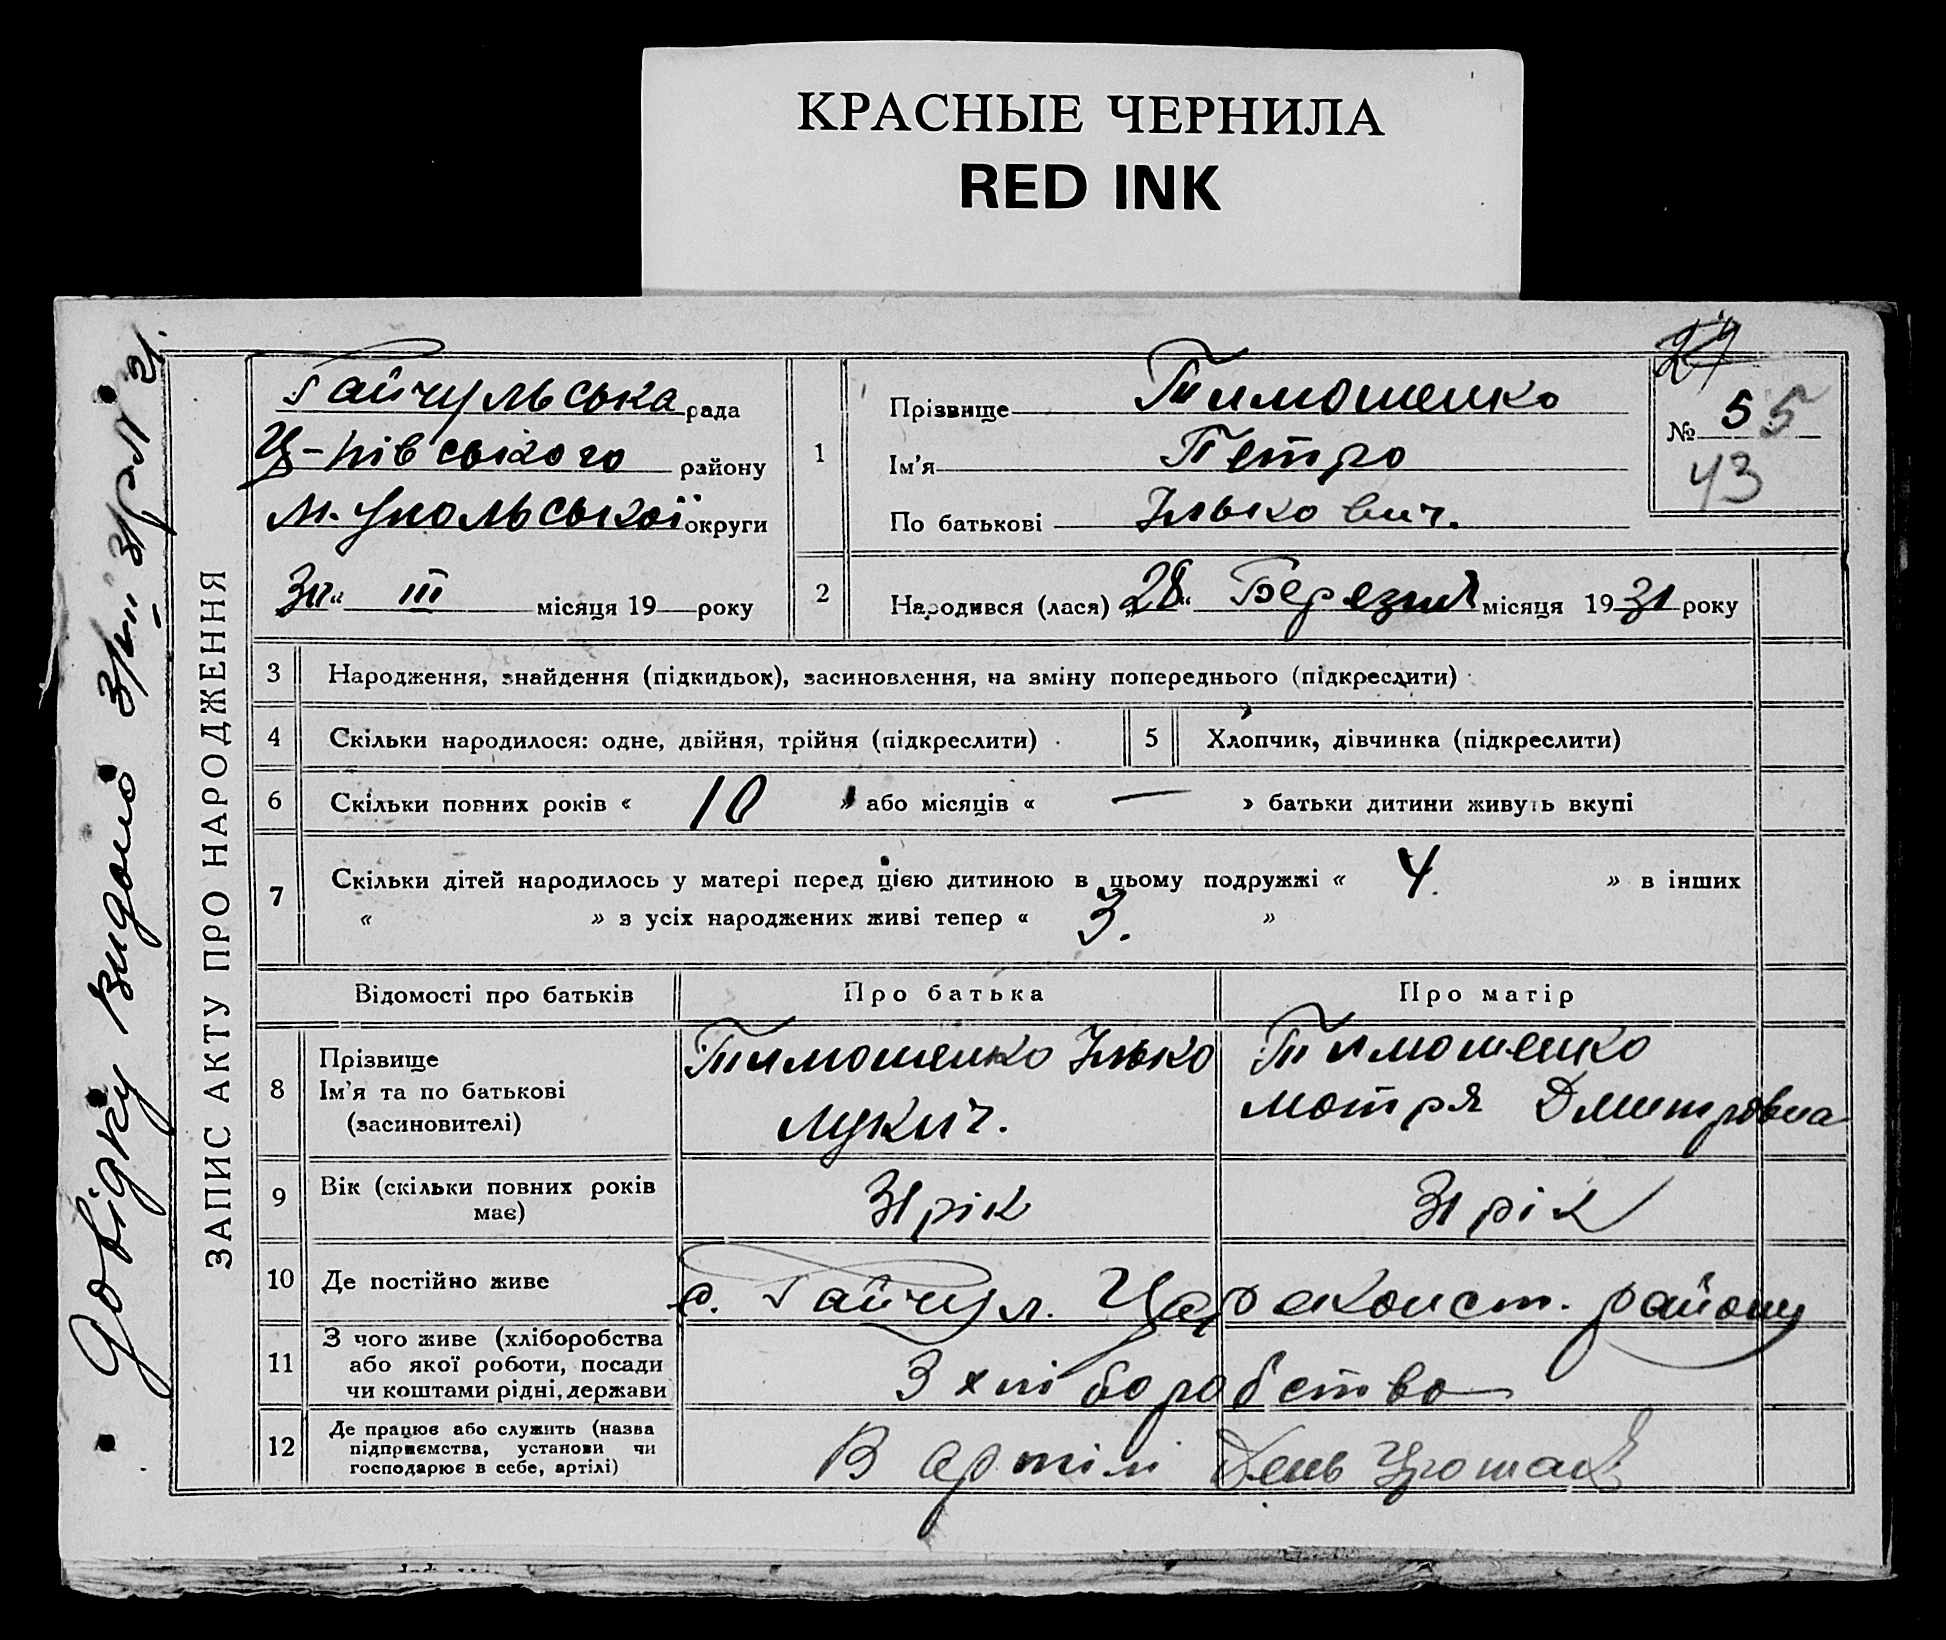 КРАСНЫЕ ЧЕРНИЛА
RED INK
Довідку видано 3/III 31 р. №
ЗАПИС АКТУ ПРО НАРОДЖЕННЯ
Гайчульська рада
Ц-ківського району
М-упольської округи
31 „ III місяця 19 року
1
Прізвище Тимошенко
Ім'я Петро
По батькові Ількович.
24
№ 55
43
2 Народився (лася) „28“ Березня місяця 1931 року
3 Народження, знайдення (підкидьок), засиновлення, на зміну попереднього (підкреслити)
4 Скільки народилося: одне, двійня, трійня (підкреслити)
5 Хлопчик, дівчинка (підкреслити)
6 Скільки повних років « 10 » або місяців « — » батьки дитини живуть вкупі
7 Скільки дітей народилось у матері перед цією дитиною в цьому подружжі « 4. » в інших
« » з усіх народжених живі тепер « 3. »
Відомості про батьків Про батька Про матір
8 Прізвище
Ім'я та по батькові
(засиновителі)
Тимошенко Ілько
Лукич.
Тимошенко
Мотря Дмитровна
9 Вік (скільки повних років
має)
31 рік
31 рік
10 Де постійно живе с. Гайчул. Цареконст. району
11 З чого живе (хліборобства
або якої роботи, посади
чи коштами рідні, держави
З хліборобство
12 Де працює або служить (назва
підприємства, установи чи
господарює в себе, артілі)
В артілі День Урожая